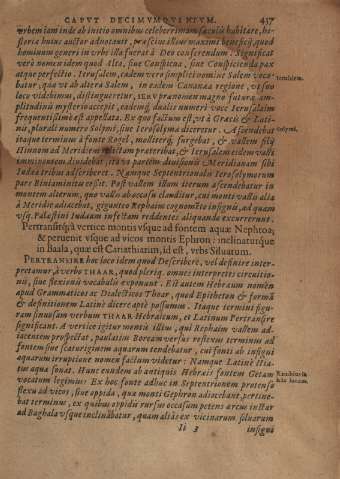 CAPVT DECIMVMQVINTVM. 437
vrbem iam inde ab initio omnibus celeberrimam sæculis habitare, hi-
storia huius auctor adnotauit, præscius illius maximi beneficij, quod
hominum generi in vrbe illa fuerat à Deo conferendum. Significat
verò nomen idem quod Alta, siue Conspicua, siue Conspicienda pax
atque perfectio. Ierusalem, eadem verò simplici nomine Salem voca-
batur, quæ vt ab altera Salem, in eadem Cananæa regione, vt suo
loco videbimus, distingueretur, IERV prænomen magno futuræ am-
plitudinis mysterio accepit, eademq́; dualis numeri voce Ierusalaim
frequentissimè est appellata. Ex quo factum est, vt à Græcis & Lati-
nis, plurali numero Solymis, siue Ierosolyma diceretur. Ascendebat
itaque terminus à fonte Rogel, molliterq́; surgebat, & vallem filij
Hinnon ad Meridiem
prætens, & Ierusalem eidem valli
imminentem diuidebat, ita vt partem diuisionis Meridianam sibi
Iudæa tribus adscriberet. Namque Septentrionalis Ierosolymorum
pars Biniaminitis cessit. Post vallem illam iterum ascendebatur in
montem alterum, quo vallis ab occasu clauditur, cui monti vallis alia
à Meridie adiacebat, giganteo Rephaim cognomēto insignis, ad quam
vsq; Palæstini Iudæam infestam reddentes aliquando excurrerunt.
Pertransitq́; à vertice montis vsque ad fontem aquæ Nephtoa;
& peruenit vsque ad vicos montis Ephron: inclinaturque
in Baala, quæ est Cariathiarim, id est, vrbs Siluarum.
PERTRANSIRE hoc loco idem quod Describere, vel definire inter-
pretamur, à verbo THAAR, quod pleriq. omnes interpretes circuitio-
nis, siue flexionis vocabulis exponunt. Est autem Hebræum nomen
apud Grammaticos ac Dialecticos Thoar, quod Epitheton & formā
& definitionem Latinè dicere aptè possumus. Itaque termini figu-
ram sinuosam verbum THAAR Hebraicum, et Latinum Pertransire
significant. A vertice igitur montis illius, qui Rephaim vallem ad-
iacentem prospectat, paulatim Boream versus reflexus terminus ad
fontem siue scaturiginem aquarum tendebatur, cui fonti ab insigni
aquarum irruptione nomen factum videtur: Namque Latinè
aquæ sonat. Hunc eundem ab antiquis Hebræis fontem Getam
vocatum legimus: Ex hoc fonte adhuc in Septentrionem protenso
flexu ad vicos, siue oppida, quæ monti Gephron adiacebant, pertine-
bat terminus, ex quibus oppidis rursus occasum petens arcus instar
ad Baghala vsque inclinabatur, quam alias ex vicinarum siluarum
Ii 3 insigni
Ierusalem.
Solymis.